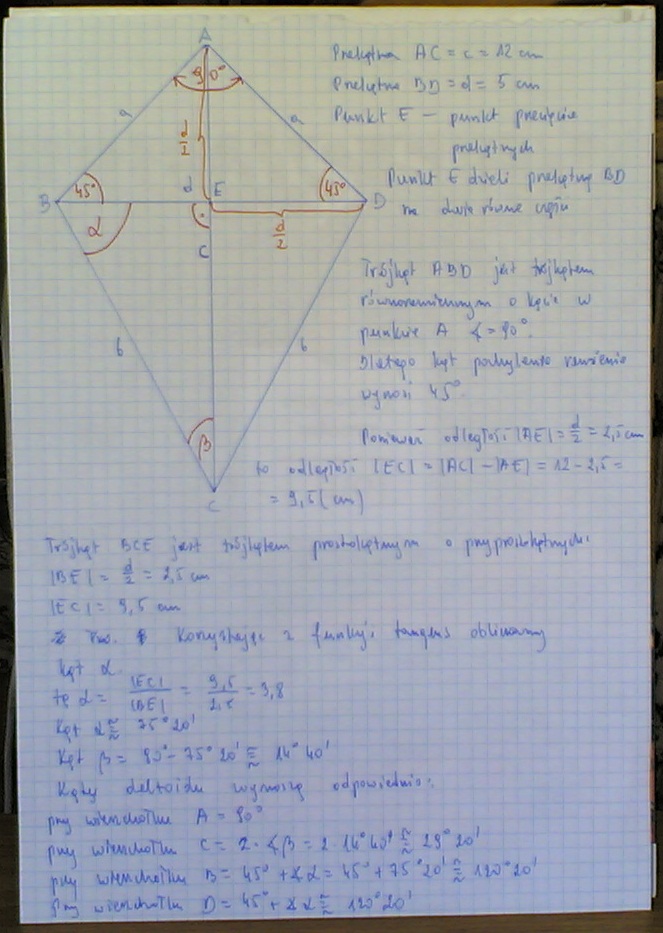 A
90°
a
a
d/2
45°
45°
B
d
E
D
α
d/2
c
b
b
β
C
Przekątna AC = c = 12 cm
Przekątna BD = d = 5 cm
Punkt E – punkt przecięcia
przekątnych
Punkt E dzieli przekątną BD
na dwie równe części
Trójkąt ABD jest trójkątem
równoramiennym o kącie w
punkcie A ∢ = 90°.
Dlatego kąt pochylenia ramienia
wynosi 45°.
Ponieważ odległość |AE| = d/2 = 2,5 cm
to odległość |EC| = |AC| - |AE| = 12 - 2,5 =
= 9,5 (cm)
Trójkąt BCE jest trójkątem prostokątnym o przyprostokątnych:
|BE| = d/2 = 2,5 cm
|EC| = 9,5 cm
Korzystając z funkcji tangens obliczamy
kąt α.
tg α = |EC|/|BE| = 9,5/2,5 = 3,8
Kąt α ≅ 75° 20'
Kąt β = 90° - 75° 20' ≅ 14° 40'
Kąty deltoidu wynoszą odpowiednio:
przy wierzchołku A = 90°
przy wierzchołku C = 2 · ∢β = 2 · 14° 40' ≅ 29° 20'
przy wierzchołku B = 45° + ∢α = 45° + 75° 20' ≅ 120° 20'
przy wierzchołku D = 45° + ∢α ≅ 120° 20'